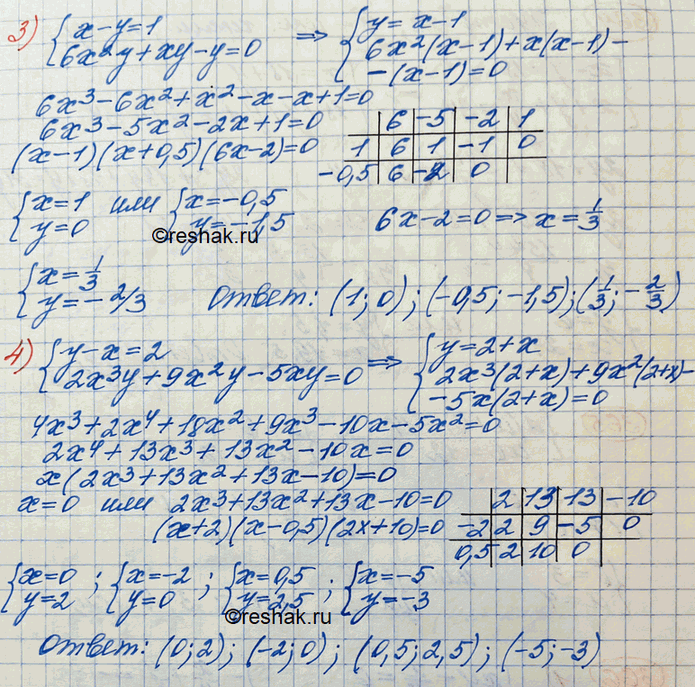 3) { x-y=1 => { y=x-1
6x²y+xy-y=0 6x²(x-1)+x(x-1)-
-(x-1)=0
6x³-6x²+x²-x-x+1=0
6x³-5x²-2x+1=0
(x-1)(x+0,5)(6x-2)=0
6 | -5 | -2 | 1
1 | 6 | 1 | -1 | 0
-0,5 | 6 | -2 | 0
{ x=1 или { x=-0,5
y=0 y=-1,5 6x-2=0 => x=1/3
©reshak.ru
{ x=1/3
y=-2/3 Ответ: (1; 0); (-0,5; -1,5); (1/3; -2/3)
4) { y-x=2 => { y=2+x
2x³y+9x²y-5xy=0 2x³(2+x)+9x²(2+x)-
-5x(2+x)=0
4x³+2x⁴+18x²+9x³-10x-5x²=0
2x⁴+13x³+13x²-10x=0
x(2x³+13x²+13x-10)=0
x=0 или 2x³+13x²+13x-10=0
(x+2)(x-0,5)(2x+10)=0
2 | 13 | 13 | -10
-2 | 2 | 9 | -5 | 0
0,5 | 2 | 10 | 0
{ x=0 ; { x=-2 ; { x=0,5 ; { x=-5
y=2 y=0 y=2,5 y=-3
©reshak.ru
Ответ: (0; 2); (-2; 0); (0,5; 2,5); (-5; -3)